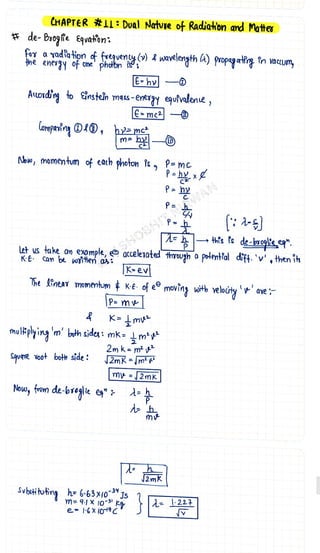 CHAPTER #11: Dual Nature of Radiation and Matter
# de-Broglie Equation:
For a radiation of frequency (ν) & wavelength (λ) propagating in vacuum,
the energy of one photon is:
E=hν —①
According to Einstein mass-energy equivalence,
E=mc² —②
Comparing ①&②, hν=mc²
m= hν/c² —③
Now, momentum of each photon is, P=mc
P= hν/c² × c
P= hν/c
P= h/c/ν
P= h/λ [∵ λ=c/ν]
λ= h/P → this is de-broglie eqⁿ.
Let us take an example, e⊖ accelerated through a potential diff. 'v', then its
K.E. can be written as:
K=ev
The linear momentum & K.E. of e⊖ moving with velocity 'v' are:-
P= mv
& K= ½mv²
multiplying 'm' both sides: mK= ½m²v²
2mK= m²v²
Square root both side: √2mK =√m²v²
mv =√2mK
Now, from de-broglie eqⁿ:- λ= h/P
λ= h/mv
λ= h/√2mK
Substituting h= 6.63×10⁻³⁴ Js
m= 9.1×10⁻³¹ Kg
e= 1.6×10⁻¹⁹ C } λ= 1.227/√V